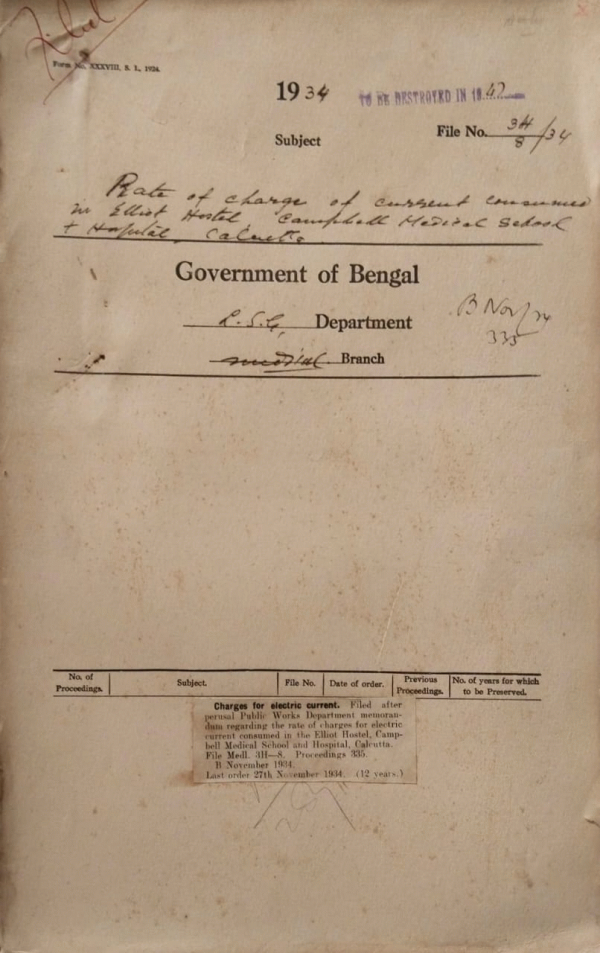 Filed
Form No. XXXVIII, S. I., 1934.
1934 TO BE DESTROYED IN 1947
Subject File No. 3H/8/34
Rate of charge of current consumed
in Elliot Hostel Campbell Medical School
+ Hospital, Calcutta
Government of Bengal
L.S.G. Department
Medical Branch
B Nov/34
335
No. of Proceedings. Subject. File No. Date of order. Previous Proceedings. No. of years for which to be Preserved.
Charges for electric current. Filed after
perusal Public Works Department memoran-
dum regarding the rate of charges for electric
current consumed in the Elliot Hostel, Camp-
bell Medical School and Hospital, Calcutta.
File Medl. 3H—8. Proceedings 335.
B November 1934.
Last order 27th November 1934. (12 years.)